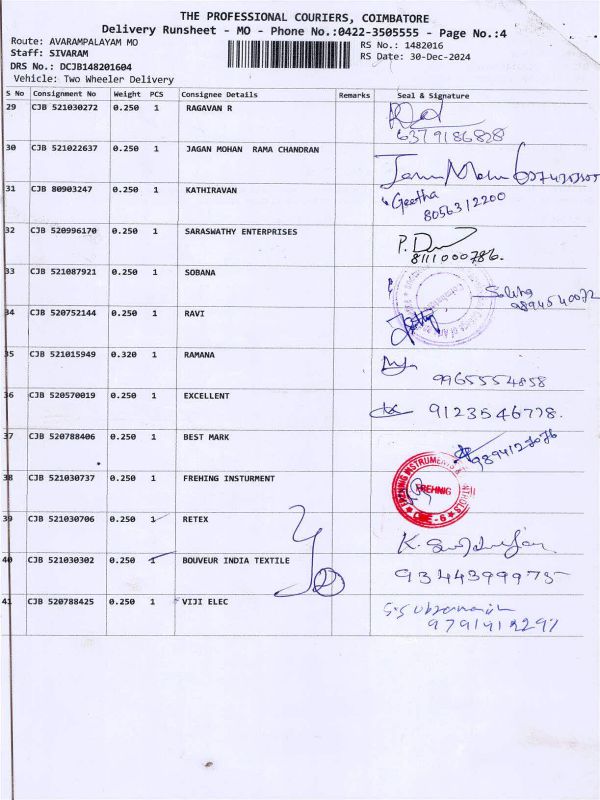 THE PROFESSIONAL COURIERS, COIMBATORE
Delivery Runsheet - MO - Phone No.:0422-3505555 - Page No.:4
Route: AVARAMPALAYAM MO
Staff: SIVARAM
DRS No.: DCJB148201604
Vehicle: Two Wheeler Delivery
RS No.: 1482016
RS Date: 30-Dec-2024
S No Consignment No Weight PCS Consignee Details Remarks Seal & Signature
29 CJB 521030272 0.250 1 RAGAVAN R
6379186828
30 CJB 521022637 0.250 1 JAGAN MOHAN RAMA CHANDRAN
31 CJB 80903247 0.250 1 KATHIRAVAN Geetha
8056312200
32 CJB 520996170 0.250 1 SARASWATHY ENTERPRISES
8111000786.
33 CJB 521087921 0.250 1 SOBANA
9894540072
34 CJB 520752144 0.250 1 RAVI
35 CJB 521015949 0.320 1 RAMANA
9965554858
36 CJB 520570019 0.250 1 EXCELLENT 9123546778.
37 CJB 520788406 0.250 1 BEST MARK
9894127076
38 CJB 521030737 0.250 1 FREHING INSTURMENT FREHNIG
CBE-6
39 CJB 521030706 0.250 1 RETEX
40 CJB 521030302 0.250 1 BOUVEUR INDIA TEXTILE 9344399975
41 CJB 520788425 0.250 1 VIJI ELEC